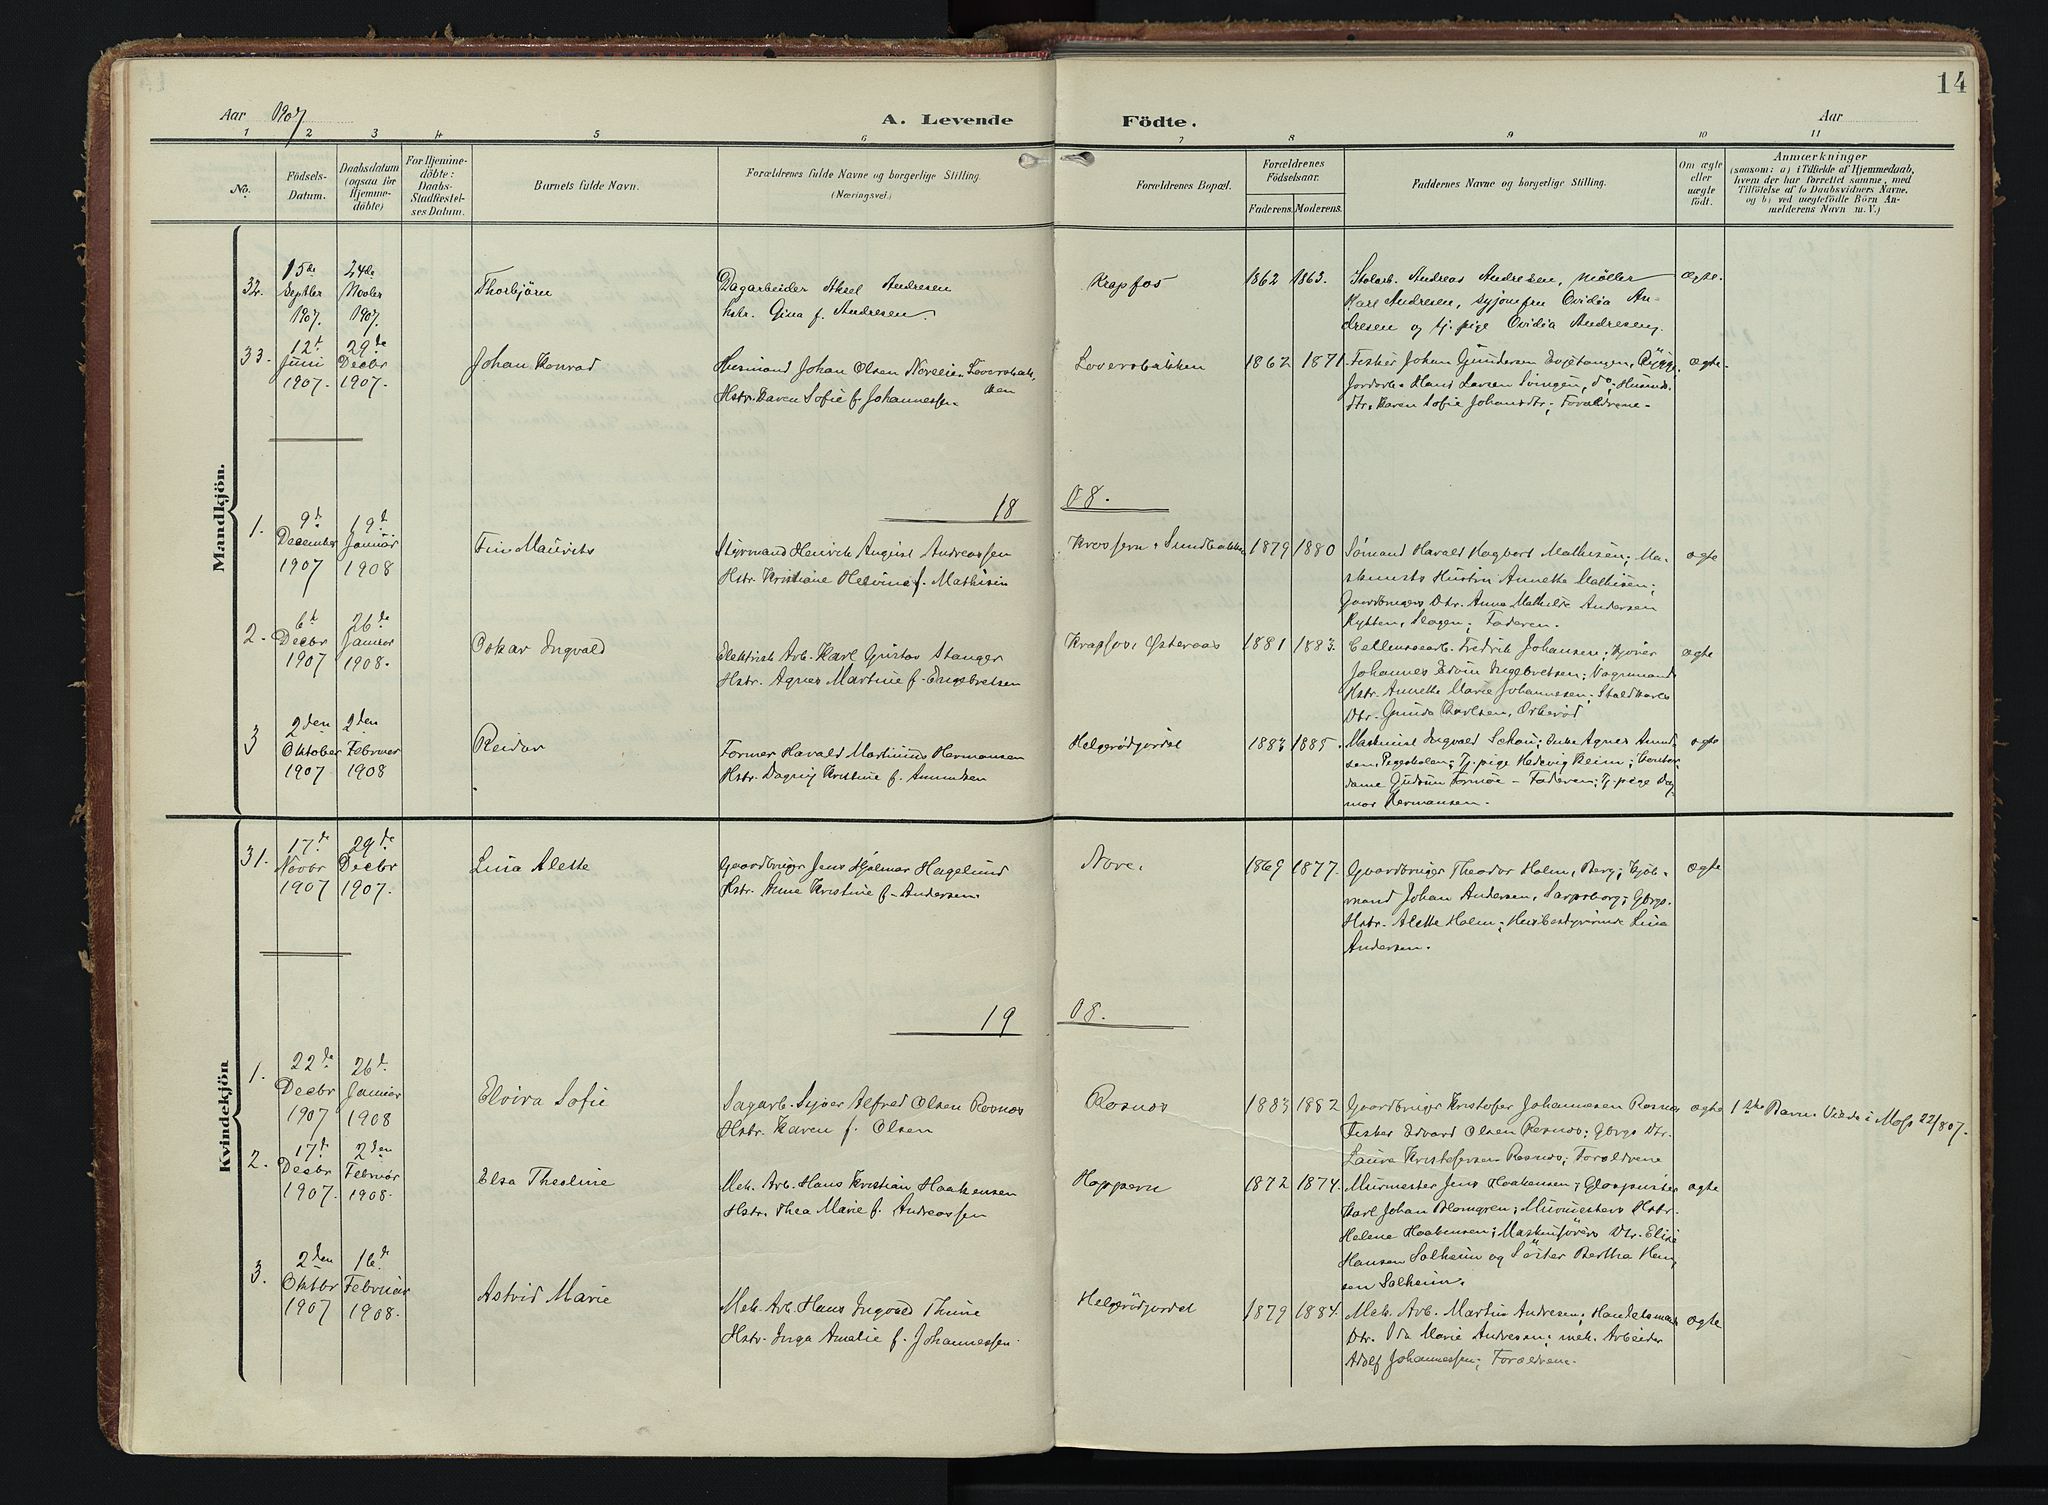 14
Aar 1907
A. Levende Födte.
Aar
1 2 3 4 5 6 7 8 9 10 11
No.
Födsels-
Datum.
Daabsdatum
(ogsaa for
Hjemme-
döbte)
For Hjemme-
döbte:
Daabs-
Stadfæstel-
ses Datum.
Barnets fulde Navn.
Forældrenes fulde Navne og borgerlige Stilling.
(Næringsvei.)
Forældrenes Bopæl.
Forældrenes
Födselsaar.
Faderens. Moderens.
Faddernes Navne og borgerlige Stilling.
Om ægte
eller
uægte
födt.
Anmærkninger
(saasom: a) i Tilfælde af Hjemmedaab,
hvem der har forrettet samme, med
Tilföielse af to Daabsvidners Navne,
og b) ved uægtefödte Börn An-
melderens Navn m. V.)
Mandkjön.
32. 15de Septbr 1907. 24de Novbr 1907. Thorbjörn
Dagarbeider Aksel Andresen
hstr. Gina f. Andresen.
Krapfos 1862 1863.
Andreas Andresen, møller
Karl Andresen, syjomfru Ovidia An-
dresen og tj. pige Ovidia Andresen.
ægte.
33. 12t Juni 1907. 29de Decbr 1907. Johan Konrad
Husmand Johan Olsen
Hstr. Karen Sofie f. Johannessen.
Loversbakken 1862 1871.
Fisker Johan Gundersen
Jordarb. Hans Larsen Svingen, do; Husmds.
dtr. Karen Sofie Johansdtr; Forældrene.
ægte.
18 08.
1. 9d December 1907 19d Januar 1908 Fin Maurits
Styrmand Henrik August Andreassen
Hstr. Kristiane Helvine f. Mathisen
Krossern, Sundbakken 1879 1880
Sömand Harald Hagbart Mathisen; Ma-
skinists Hustru Annette Mathisen;
Gaardbrugers Dtr. Anna Mathilde Andersen
Slagen; Faderen.
ægte
2. 6d Decbr 1907 26de Januar 1908. Oskar Ingvald
Elektrisk Arb. Karl Gustav Stanger
Hstr. Agnes Martine f. Engebretsen
Krapfos, Østeraas 1881 1883.
Cellulosearb. Fredrik Johansen;
Johannes Edvin Ingebretsen; Vognmands
Hstr. Annette Marie Johannesen; Staldkarls
Dtr. Gunda Karlsen, Orkeröd
ægte
3 2den Oktober 1907 2den Februar 1908 Reidar
Former Harald Martinius Hermansen
Hstr. Dagny Kristine f. Amundsen
Helgerödjordet 1883 1885.
Maskinist Ingvald Schau; Enke Agnes Amund-
sen, Tj. pige Hedevig Reim; Kontor-
dame Gudrun Formoe – Faderen; Tj. pige Dag-
mar Hermansen.
ægte
Kvindekjön
31. 17de Novbr 1907 29de Decbr 1907. Lina Alette
Gaardbruger Jens Hjalmar Hagelund
Hstr. Anne Kristine f. Andersen.
Nore. 1869 1877.
Gaardbruger Theodor Holm, Berg; Kjöb-
mand Johan Andersen, Sarpsborg; Gbrgs.
Hstr. Alette Holm; Husbestyrerinde Lina
Andersen.
ægte
19 08.
1. 22de Decbr 1907 26d. Januar 1908 Elvira Sofie
Sagarb. Syver Alfred Olsen Rosnæs
Hstr. Karen f. Olsen
Rosnæs 1883 1882
Gaardbruger Kristofer Johannesen Rosnæs
Fisker Edvard Olsen Rosnæs; Gbrgs Dtr.
Laura Kristofersen Rosnæs; Forældrene
ægte
1ste Barn. Viede i Moss 22/8 07.
2. 17d Decbr 1907. 2den Februar 1908. Elsa Theoline
Mek. Arb. Hans Kristian Haakensen
Hstr. Thea Marie f. Andreassen
Hoppern 1872 1874.
Murmester Jens Haakensen; Glaspuster
Karl Johan Blomgren; Murmesters Hstr.
Helene Haakensen; Maskinförers Dtr. Elise
Hansen Solheim og Söster Bertha Han-
sen Solheim.
ægte
3. 2den Oktbr 1907 16d. Februar 1908. Astrid Marie
Mek. Arb. Hans Ingvald Thune
Hstr. Inga Amalie f. Johannessen.
Helgerödjordet 1879 1884.
Mek. Arb. Martin Andresen; Handelsmands
Dtr. Ida Marie Andresen; mek. Arbeider
Adolf Johannessen; Forældrene.
ægte